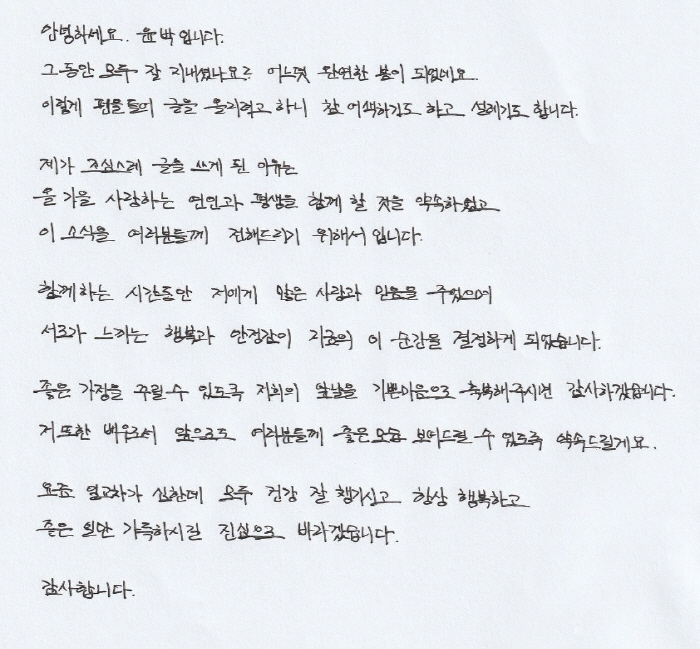 안녕하세요. 윤박입니다.
그동안 모두 잘 지내셨나요? 어느덧 완연한 봄이 되었네요.
이렇게 펜을 들며 글을 올리려고 하니 참 어색하기도 하고 설레기도 합니다.
제가 조심스레 글을 쓰게 된 이유는
올 가을 사랑하는 연인과 평생을 함께 할 것을 약속하였고
이 소식을 여러분들께 전해드리기 위해서입니다.
함께하는 시간동안 저에게 많은 사랑과 믿음을 주었으며
서로가 느끼는 행복과 안정감이 지금의 이 순간을 결정하게 되었습니다.
좋은 가정을 꾸릴 수 있도록 저희의 앞날을 기쁜마음으로 축복해주시면 감사하겠습니다.
저 또한 배우로서 앞으로도 여러분들께 좋은모습 보여드릴 수 있도록 약속드릴게요.
요즘 일교차가 심한데 모두 건강 잘 챙기시고 항상 행복하고
좋은 일만 가득하시길 진심으로 바라겠습니다.
감사합니다.